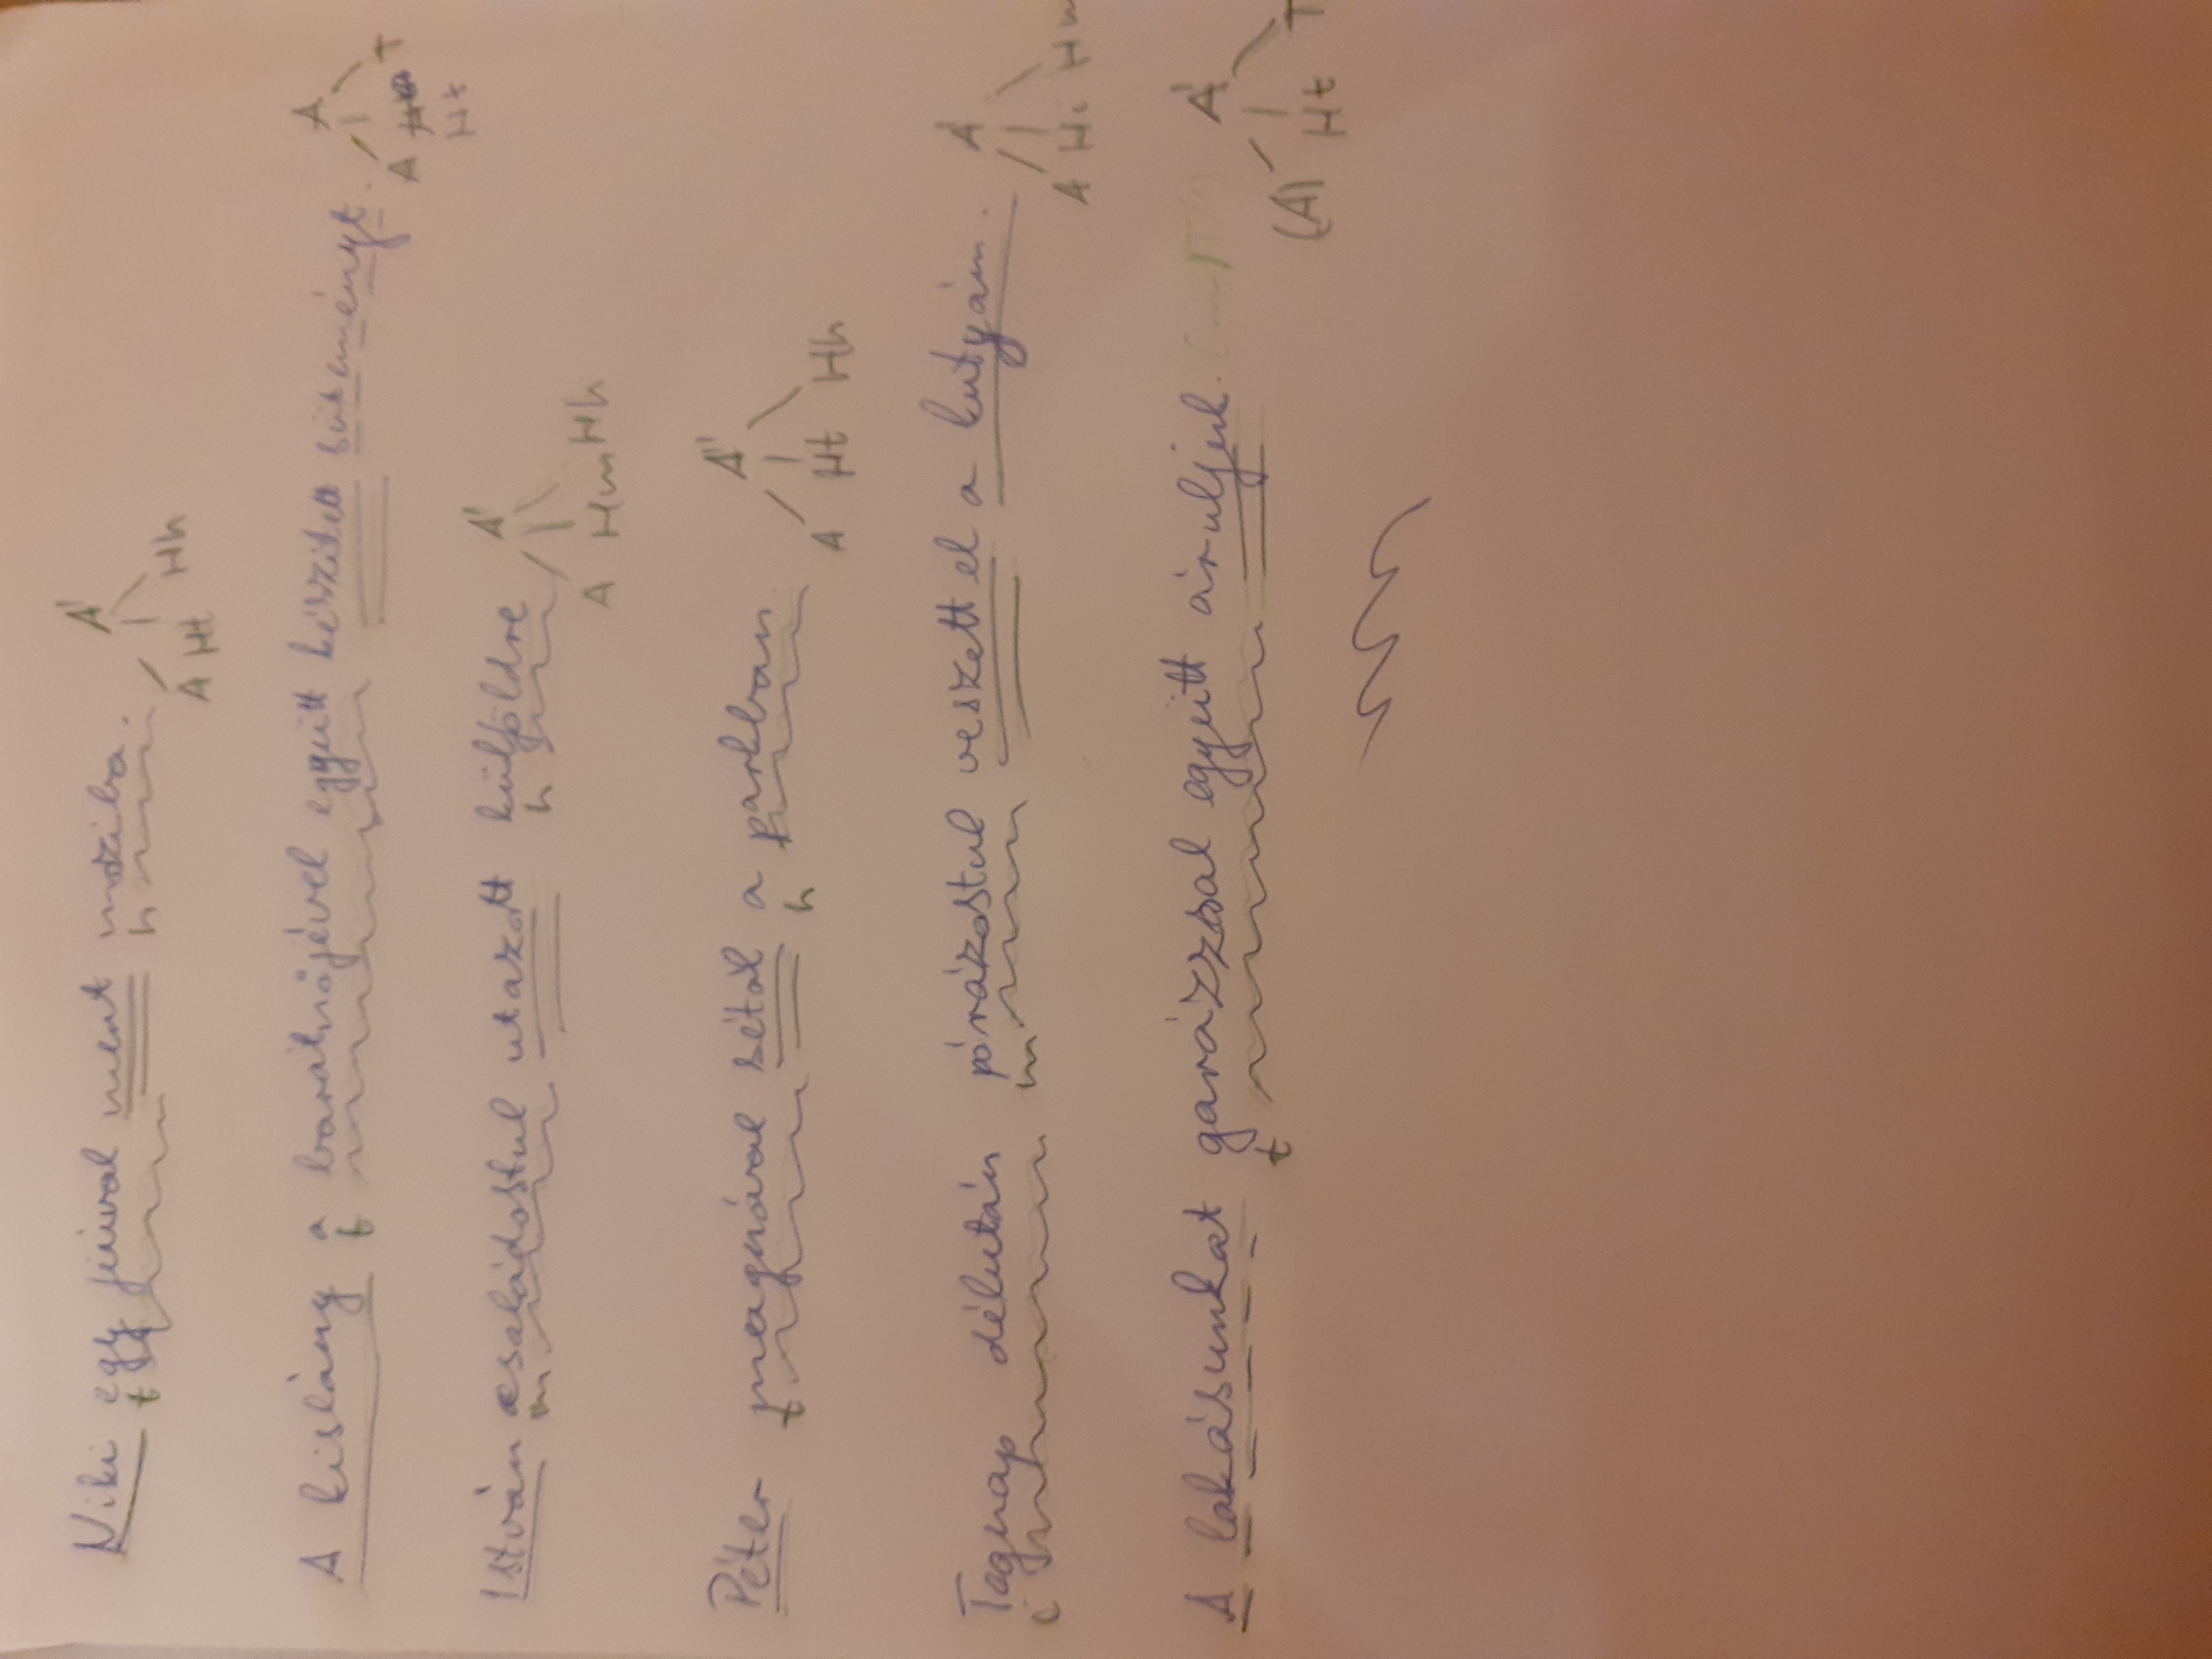 Niki egy fiúval ment moziba. Á
t h A Ht Hh
A kislány a barátnőjével együtt készített süteményt. Á
t A Ht T
Ht
István családostul utazott külföldre Á
m h A Hm Hh
Péter magával sétál a parkban. Á
t h A Ht Hh
Tegnap délután pórázostul veszett el a kutyám. Á
i m A Hi Hm
A lakásunkat garázzsal együtt áruljuk. Á
t (A) Ht T